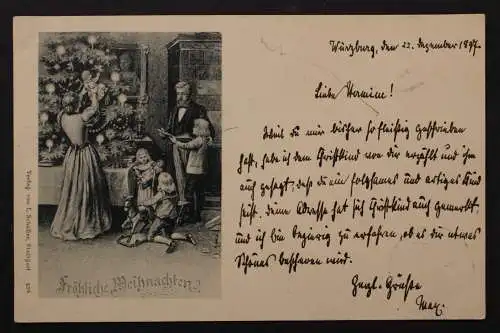 Würzburg, den 22. Dezember 1897.
Liebe Hermine!
Weil du mir bisher so fleißig geschrieben
hast, habe ich dem Christkind von dir erzählt und ihm
auch gesagt, daß du ein folgsames und artiges Kind
seist. Deine Adresse hat sich Christkind auch gemerkt,
und ich bin begierig zu erfahren, ob es dir etwas
Schönes bescheren wird.
Herzl. Grüße
Max.
Fröhliche Weihnachten!
Verlag von Stuttgart